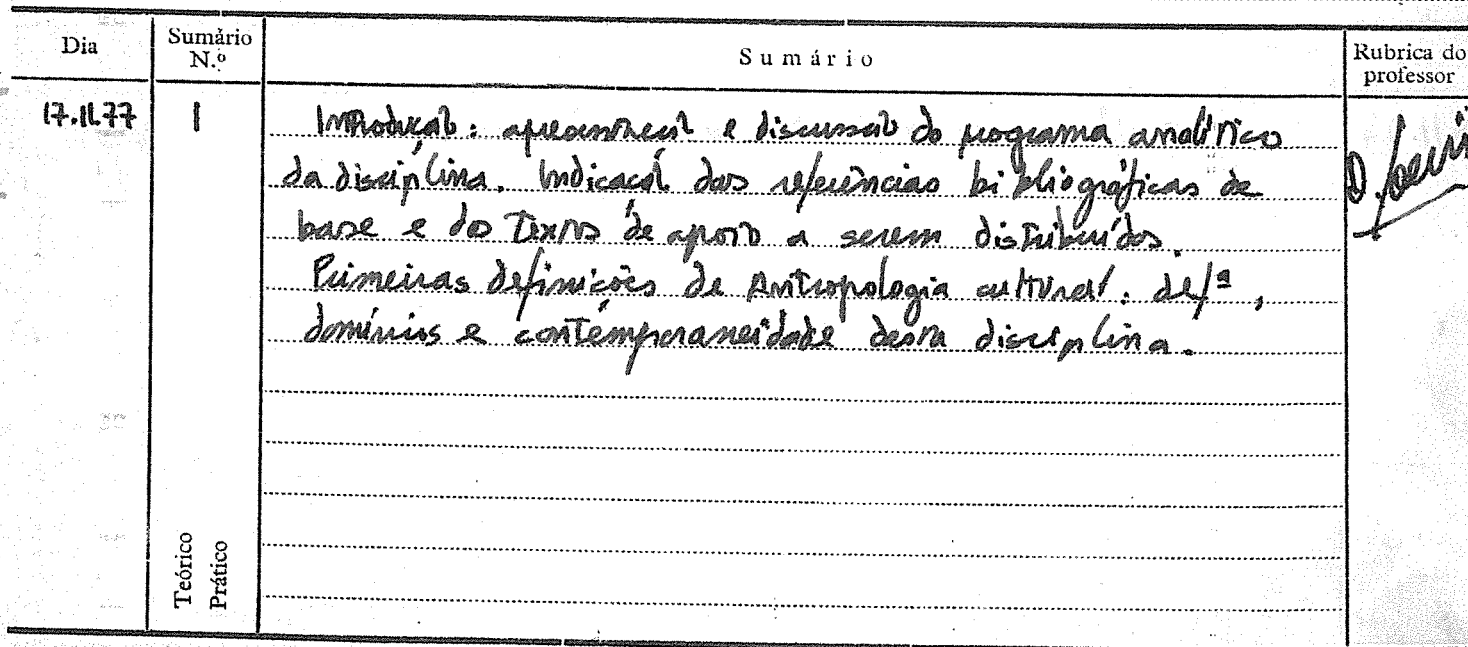 Dia
Sumário N.º
Sumário
Rubrica do professor
17.11.77
1
Introdução: apresentação e discussão do programa analítico
da disciplina. Indicação das referências bibliográficas de
base e dos Textos de apoio a serem distribuídos.
Primeiras definições de Antropologia cultural: def/ª,
domínios e contemporaneidade desta disciplina.
Teórico
Prático